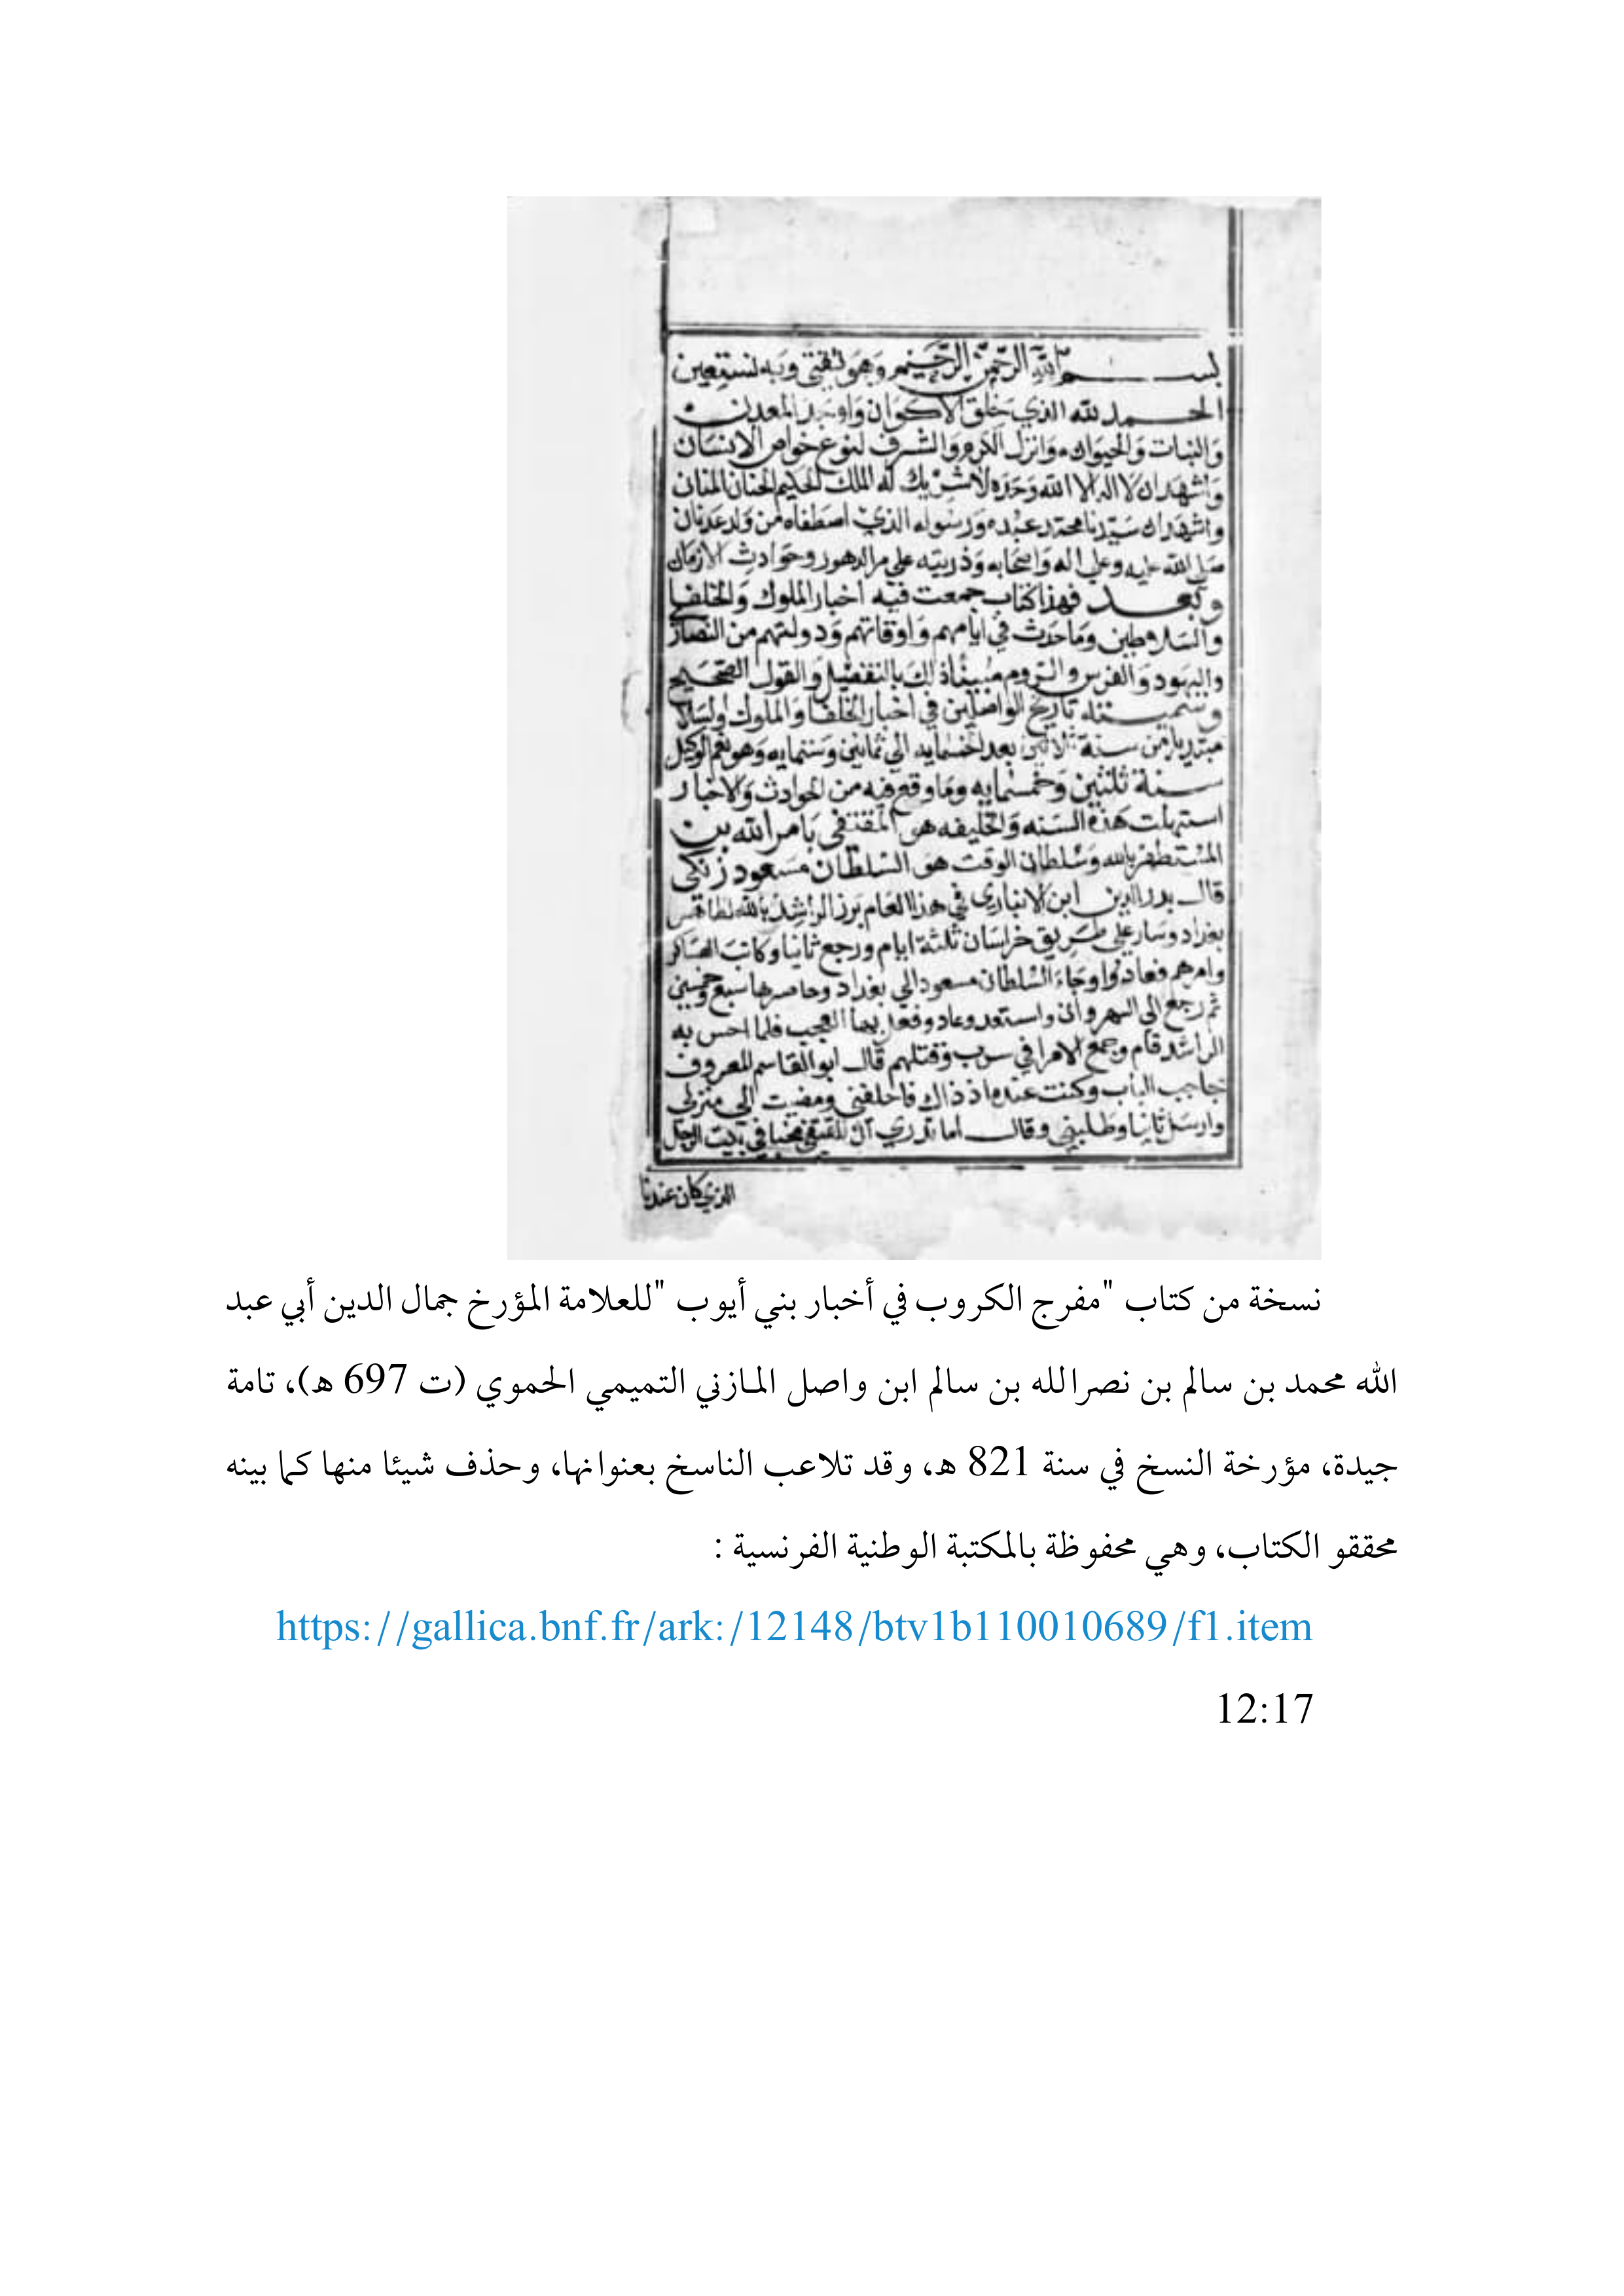 بســـــم الله الرحمن الرحيم وهو ثقتي وبه نستعين
الحمد لله الذي خلق الاكوان واوجد المعدن
والنبات والحيوان وانزل الكرم والشرف لنوع خواص الانسان
واشهد ان لا اله الا الله وحده لا شريك له الملك الحكيم الحنان المنان
واشهد ان سيدنا محمد عبده ورسوله الذي اصطفاه من ولد عدنان
صلى الله عليه وعلي اله واصحابه وذريته علي مر الدهور وحوادث الازمان
وبعد فهذا كتاب جمعت فيه اخبار الملوك والخلفا
والسلاطين وما حدث في ايامهم واوقاتهم ودولتهم من النصار
واليهود والفرس والروم مبينا ذلك بالتفضيل والقول الصحيح
وسميته تاريخ الواصلين في اخبار الخلفا والملوك
مبتديا من سنة ثلاثين بعد الخمسمايه الي ثمانين وستمايه وهو نعم الوكيل
سنة ثلثين وخمسمايه وما وقع فيه من الحوادث والاخبار
استهلت هذه السنه والخليفه هو المقتفى بامر الله بن
المستظهر بالله وسلطان الوقت هو السلطان مسعود زنكى
قال بدر الدين ابن الانباري في هذا العام برز الراشد بالله
بغداد وسار علي طريق خراسان ثلثة ايام ورجع ثانيا وكاتب العساكر
وامرهم فعادوا وجاء السلطان مسعود الي بغداد وحاصرها سبع وخمسين
ثم رجع الي النهروان واستعد وعاد وفعل بها العجب فلما احس به
الراشد قام وجمع الامرا في سرب وقتلهم قال ابو القاسم المعروف
حاجب الباب وكنت عنده اذ ذاك فاحلفني ومضيت الي منزلي
وارسل ثانيا وطلبني وقال اما تدري ان المقتفي مختبا في بيت الرجل
الذي كان عندنا
نسخة من كتاب "مفرج الكروب في أخبار بني أيوب "للعلامة المؤرخ جمال الدين أبي عبد
الله محمد بن سالم بن نصرالله بن سالم ابن واصل المازني التميمي الحموي (ت 697 هـ)، تامة
جيدة، مؤرخة النسخ في سنة 821 هـ، وقد تلاعب الناسخ بعنوانها، وحذف شيئا منها كما بينه
محققو الكتاب، وهي محفوظة بالمكتبة الوطنية الفرنسية :
https://gallica.bnf.fr/ark:/12148/btv1b110010689/f1.item
12:17